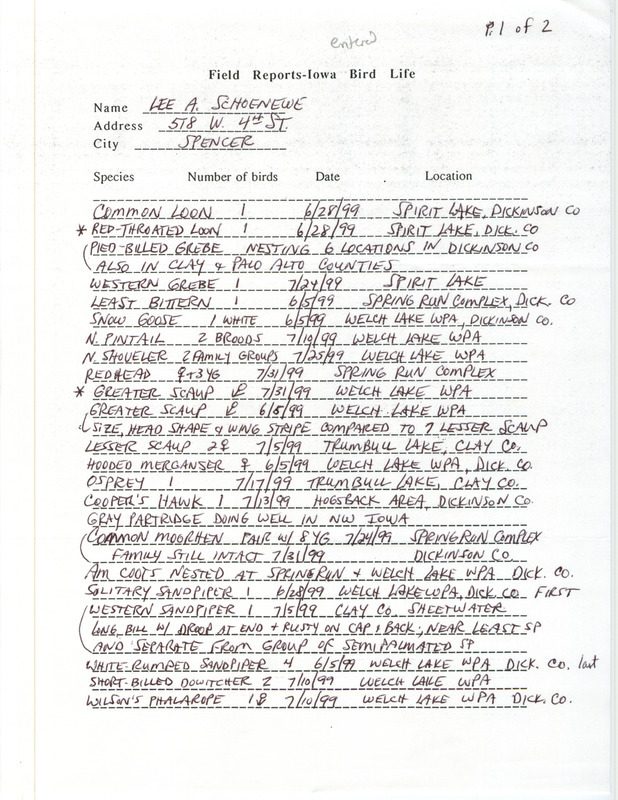 P.1 of 2
entered
Field Reports-Iowa Bird Life
Name LEE A. SCHOENEWE
Address 518 W. 4th ST.
City SPENCER
Species Number of birds Date Location
COMMON LOON 1 6/28/99 SPIRIT LAKE, DICKINSON CO
* RED-THROATED LOON 1 6/28/99 SPIRIT LAKE, DICK. CO
PIED-BILLED GREBE NESTING 6 LOCATIONS IN DICKINSON CO
ALSO IN CLAY & PALO ALTO COUNTIES
WESTERN GREBE 1 7/24/99 SPIRIT LAKE
LEAST BITTERN 1 6/5/99 SPRING RUN COMPLEX, DICK. CO
SNOW GOOSE 1 WHITE 6/5/99 WELCH LAKE WPA, DICKINSON CO.
N. PINTAIL 2 BROODS 7/10/99 WELCH LAKE WPA
N. SHOVELER 2 FAMILY GROUPS 7/25/99 WELCH LAKE WPA
REDHEAD ♀+3YG 7/31/99 SPRING RUN COMPLEX
* GREATER SCAUP 7/31/99 WELCH LAKE WPA
GREATER SCAUP 6/5/99 WELCH LAKE WPA
SIZE, HEAD SHAPE & WING STRIPE COMPARED TO 7 LESSER SCAUP
LESSER SCAUP 2♀ 7/5/99 TRUMBULL LAKE, CLAY CO.
HOODED MERGANSER ♀ 6/5/99 WELCH LAKE WPA, DICK. CO.
OSPREY 1 7/17/99 TRUMBULL LAKE, CLAY CO.
COOPER'S HAWK 1 7/13/99 HOGSBACK AREA, DICKINSON CO.
GRAY PARTRIDGE DOING WELL IN NW IOWA
COMMON MOORHEN PAIR W/ 8 YG 7/24/99 SPRING RUN COMPLEX
FAMILY STILL INTACT 7/31/99 DICKINSON CO.
AM COOTS NESTED AT SPRING RUN & WELCH LAKE WPA DICK. CO.
SOLITARY SANDPIPER 1 6/28/99 WELCH LAKE WPA, DICK. CO FIRST
WESTERN SANDPIPER 1 7/5/99 CLAY CO SHEETWATER
LONG BILL W/ DROOP AT END + RUSTY ON CAP & BACK, NEAR LEAST SP
AND SEPARATE FROM GROUP OF SEMIPALMATED SP
WHITE-RUMPED SANDPIPER 4 6/5/99 WELCH LAKE WPA DICK. CO. last
SHORT-BILLED DOWITCHER 2 7/10/99 WELCH LAKE WPA
WILSON'S PHALAROPE 7/10/99 WELCH LAKE WPA DICK. CO.